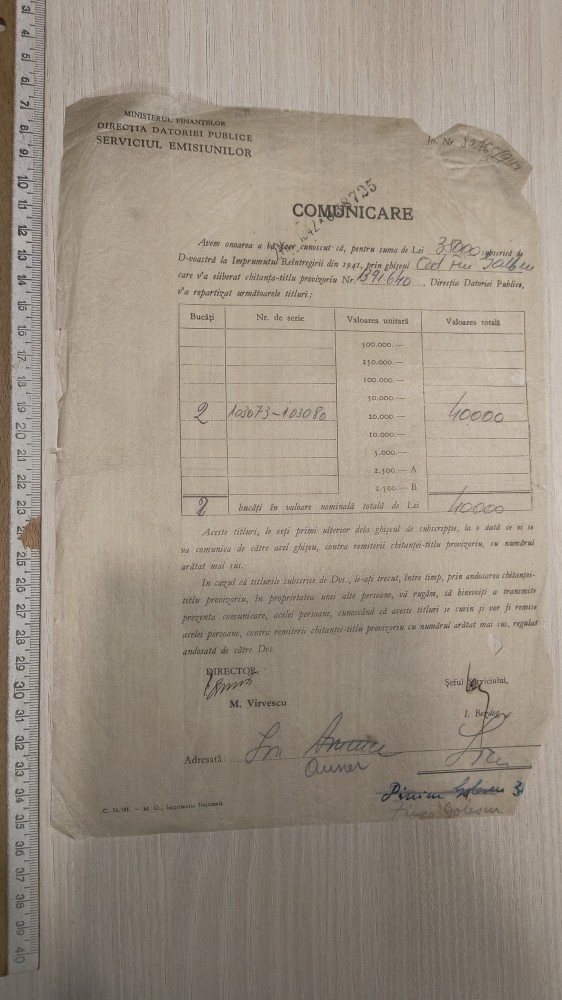 MINISTERUL FINANȚELOR
DIRECȚIA DATORIEI PUBLICE
SERVICIUL EMISIUNILOR
Jn. Nr.
COMUNICARE
Avem onoarea a vă face cunoscut că, pentru suma de Lei subscrisă de
D-voastră la Împrumutul Reîntregirii din 1941, prin ghișeul
care v'a eliberat chitanța-titlu provizoriu Nr. 1391640, Direcția Datoriei Publice,
v'a repartizat următoarele titluri:
Bucăți Nr. de serie Valoarea unitară Valoarea totală
500.000.—
250.000.—
100.000.—
50.000.—
2 103073-103080 20.000.— 40000
10.000.—
5.000.—
2.500.— A
2.500.— B
2 bucăți în valoare nominală totală de Lei 40000
Aceste titluri, le veți primi ulterior dela ghișeul de subscripție, la o dată ce vi se
va comunica de către acel ghișeu, contra remiterii chitanței-titlu provizoriu, cu numărul
arătat mai sus.
În cazul că titlurile subscrise de Dvs., le-ați trecut, între timp, prin andosarea chitanței-
titlu provizoriu, în proprietatea unei alte persoane, vă rugăm, să binevoiți a transmite
prezenta comunicare, acelei persoane, cunoscând că aceste titluri se cuvin și vor fi remise
acelei persoane, contra remiterii chitanței-titlu provizoriu cu numărul arătat mai sus, regulat
andosată de către Dvs.
DIRECTOR,
Șeful Serviciului,
M. Vîrvescu
Adresată:
C. 76.181. — M. O., Imprimeria Națională.
3 4 5 6 7 8 9 10 11 12 13 14 15 16 17 18 19 20 21 22 23 24 25 26 27 28 29 30 31 32 33 34 35 36 37 38 39 40